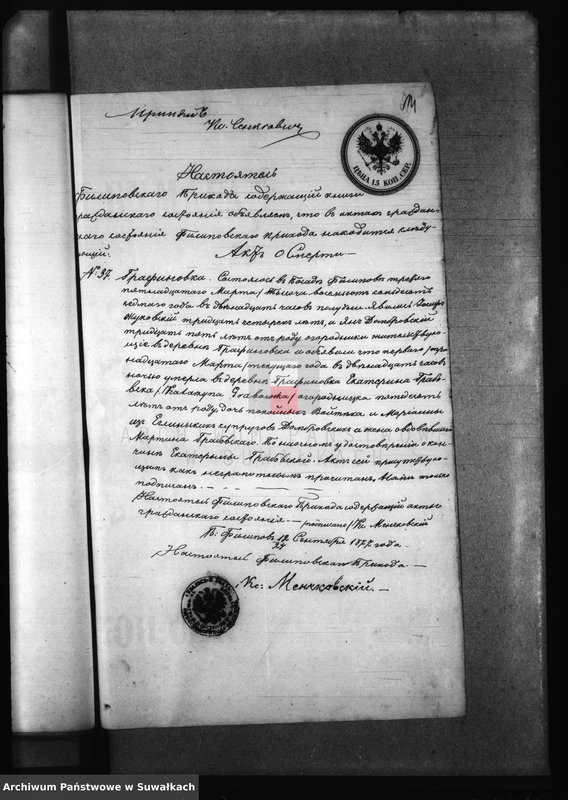 Принялъ
Кс. Сенкович
ЦѢНА 15 КОП. СЕР.
Настоятель
Филиповского Прихода содержащий книги
гражданского состояния объявляет, что в актах граждан-
ского состояния Филиповского прихода находится следу-
ющий.
Актъ о Смерти
№ 37. Графиновка. Состоялось в Посаде Филипове третьего
пятнадцатаго Марта / тысяча восемьсот семьдесят
седмого года в двенадцать часов полудня. Явились
Жуковский тридцать четырех лет, и Ян Домбровский
тридцать пять лет от роду огородники жительствую-
щие в деревни Графиновка и объявили что первого / три-
надцатаго Марта / текущего года в двенадцать часов
ночью умерла в деревни Графиновка Екатерина
огородница
лет от роду, дочь покойных Войтека и Марианны
из супругов Домбровских а жена овдовевшаго
Мартина По настоящем удостоверении о кон-
чине Екатерины Акт сей присутствую-
щим как неграмотным прочитан, Нами только
подписан. —
Настоятель Филиповского Прихода содержащий акты
гражданского состояния — подписано / Кс. Менчковский
П. Филипов 12/24 Сентября 1877 года —
Настоятель Филиповского Прихода —
Кс. Менчковскій. —
Archiwum Państwowe w Suwałkach